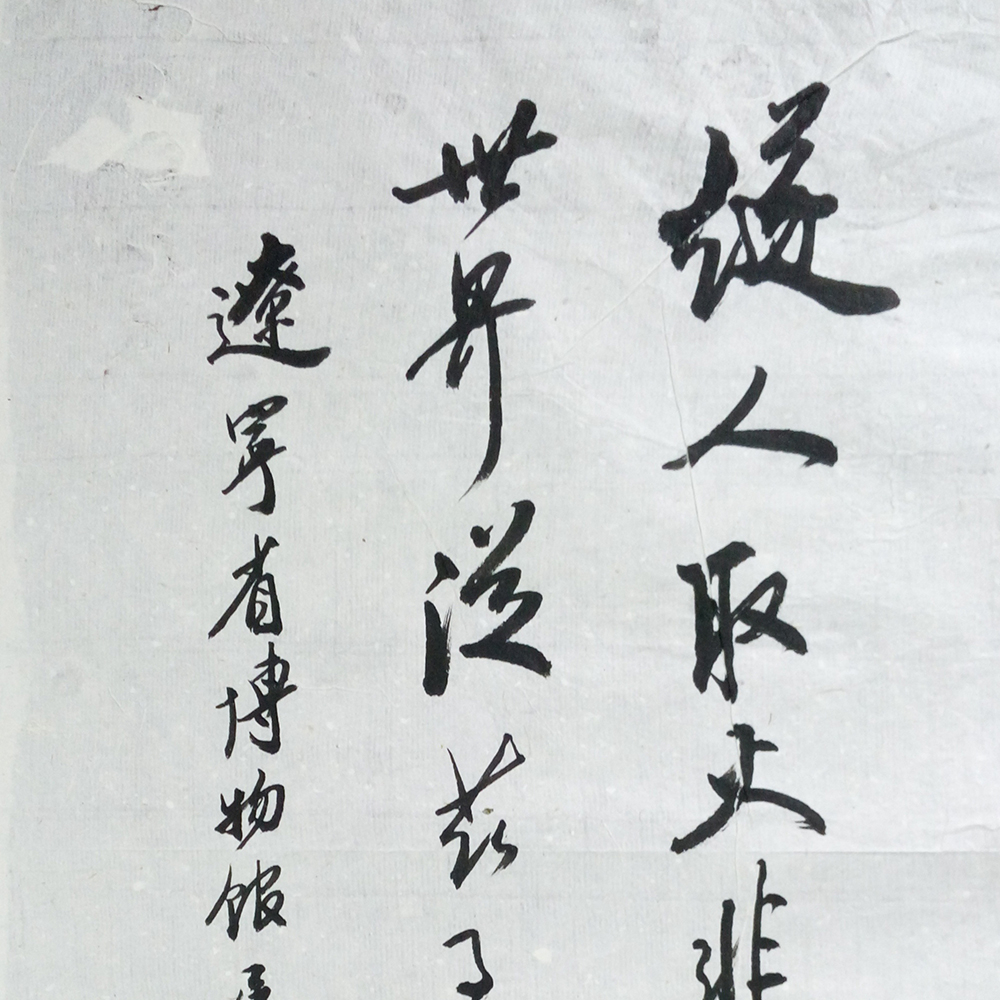 燧人取火非
世界從茲
遼寧省博物館